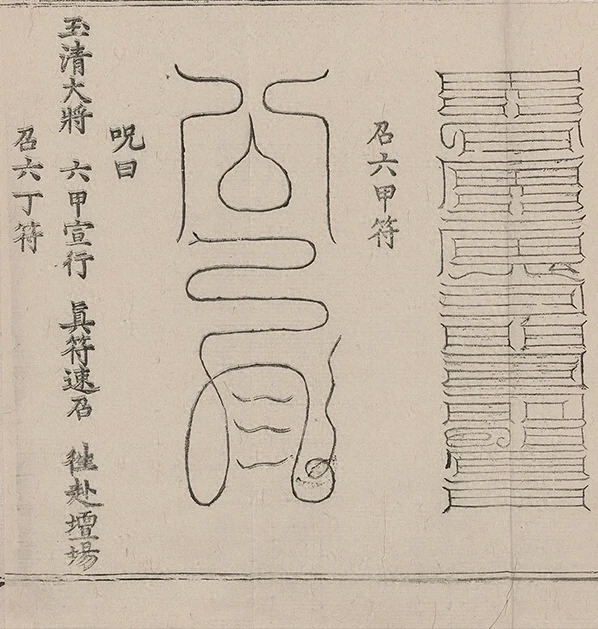 召六甲符
呪曰
玉清大將 六甲宣行 眞符速召 徃赴壇場
召六丁符